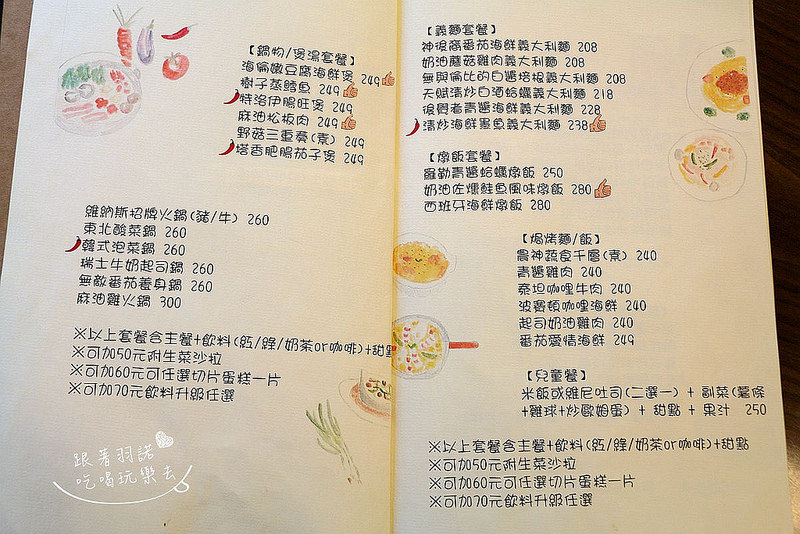 【鍋物/煲湯套餐】
海倫嫩豆腐海鮮煲 249
樹子蒸鱈魚 249
特洛伊腸旺煲 249
麻油松板肉 249
野菇三重奏(素) 249
塔香肥腸茄子煲 249
維納斯招牌火鍋(豬/牛) 260
東北酸菜鍋 260
韓式泡菜鍋 260
瑞士牛奶起司鍋 260
無敵番茄養身鍋 260
麻油雞火鍋 300
※以上套餐含主餐+飲料(紅/綠/奶茶or咖啡)+甜點
※可加50元附生菜沙拉
※可加60元可任選切片蛋糕一片
※可加70元飲料升級任選
跟著羽諾
吃喝玩樂去
【義麵套餐】
神祝福番茄海鮮義大利麵 208
奶油蘑菇雞肉義大利麵 208
無與倫比的白醬培根義大利麵 208
天賦清炒白酒蛤蠣義大利麵 218
保衛者青醬海鮮義大利麵 228
清炒海鮮墨魚義大利麵 238
【燉飯套餐】
羅勒青醬蛤蠣燉飯 250
奶油佐燻鮭魚風味燉飯 280
西班牙海鮮燉飯 280
【焗烤麵/飯】
農神蔬食千層(素) 240
青醬雞肉 240
泰坦咖哩牛肉 240
波賽頓咖哩海鮮 240
起司奶油雞肉 240
番茄愛情海鮮 249
【兒童餐】
米飯或維尼吐司(二選一) + 副菜(薯條
+雞球+炒歐姆蛋) + 甜點 + 果汁 250
※以上套餐含主餐+飲料(紅/綠/奶茶or咖啡)+甜點
※可加50元附生菜沙拉
※可加60元可任選切片蛋糕一片
※可加70元飲料升級任選